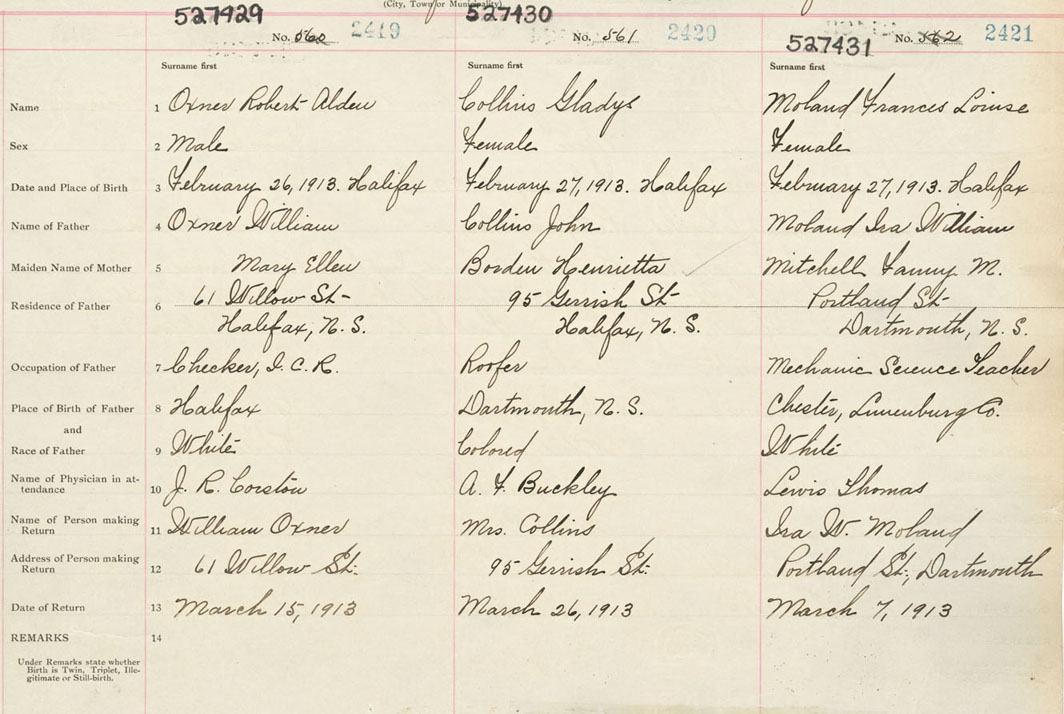 (City, Town or Municipality)
527429 527430
No. 560 2419 No. 561 2420 527431 No. 562 2421
Surname first Surname first Surname first
Name 1 Oxner Robert Alden Collins Gladys Moland Frances Louise
Sex 2 Male Female Female
Date and Place of Birth 3 February 26, 1913. Halifax February 27, 1913. Halifax February 27, 1913. Halifax
Name of Father 4 Oxner William Collins John Moland Ira William
Maiden Name of Mother 5 Mary Ellen Borden Henrietta Mitchell Fanny M.
Residence of Father 6 61 Willow St 95 Gerrish St Portland St
Halifax, N. S. Halifax, N. S. Dartmouth, N. S.
Occupation of Father 7 Checker, I. C. R. Roofer Mechanic Science Teacher
Place of Birth of Father 8 Halifax Dartmouth, N. S. Chester, Lunenburg Co.
and
Race of Father 9 White Colored White
Name of Physician in at-
tendance 10 J. R. Corston A. F. Buckley Lewis Thomas
Name of Person making
Return 11 William Oxner Mrs. Collins Ira W. Moland
Address of Person making
Return 12 61 Willow St. 95 Gerrish St. Portland St., Dartmouth
Date of Return 13 March 15, 1913 March 26, 1913 March 7, 1913
REMARKS 14
Under Remarks state whether
Birth is Twin, Triplet, Ille-
gitimate or Still-birth.